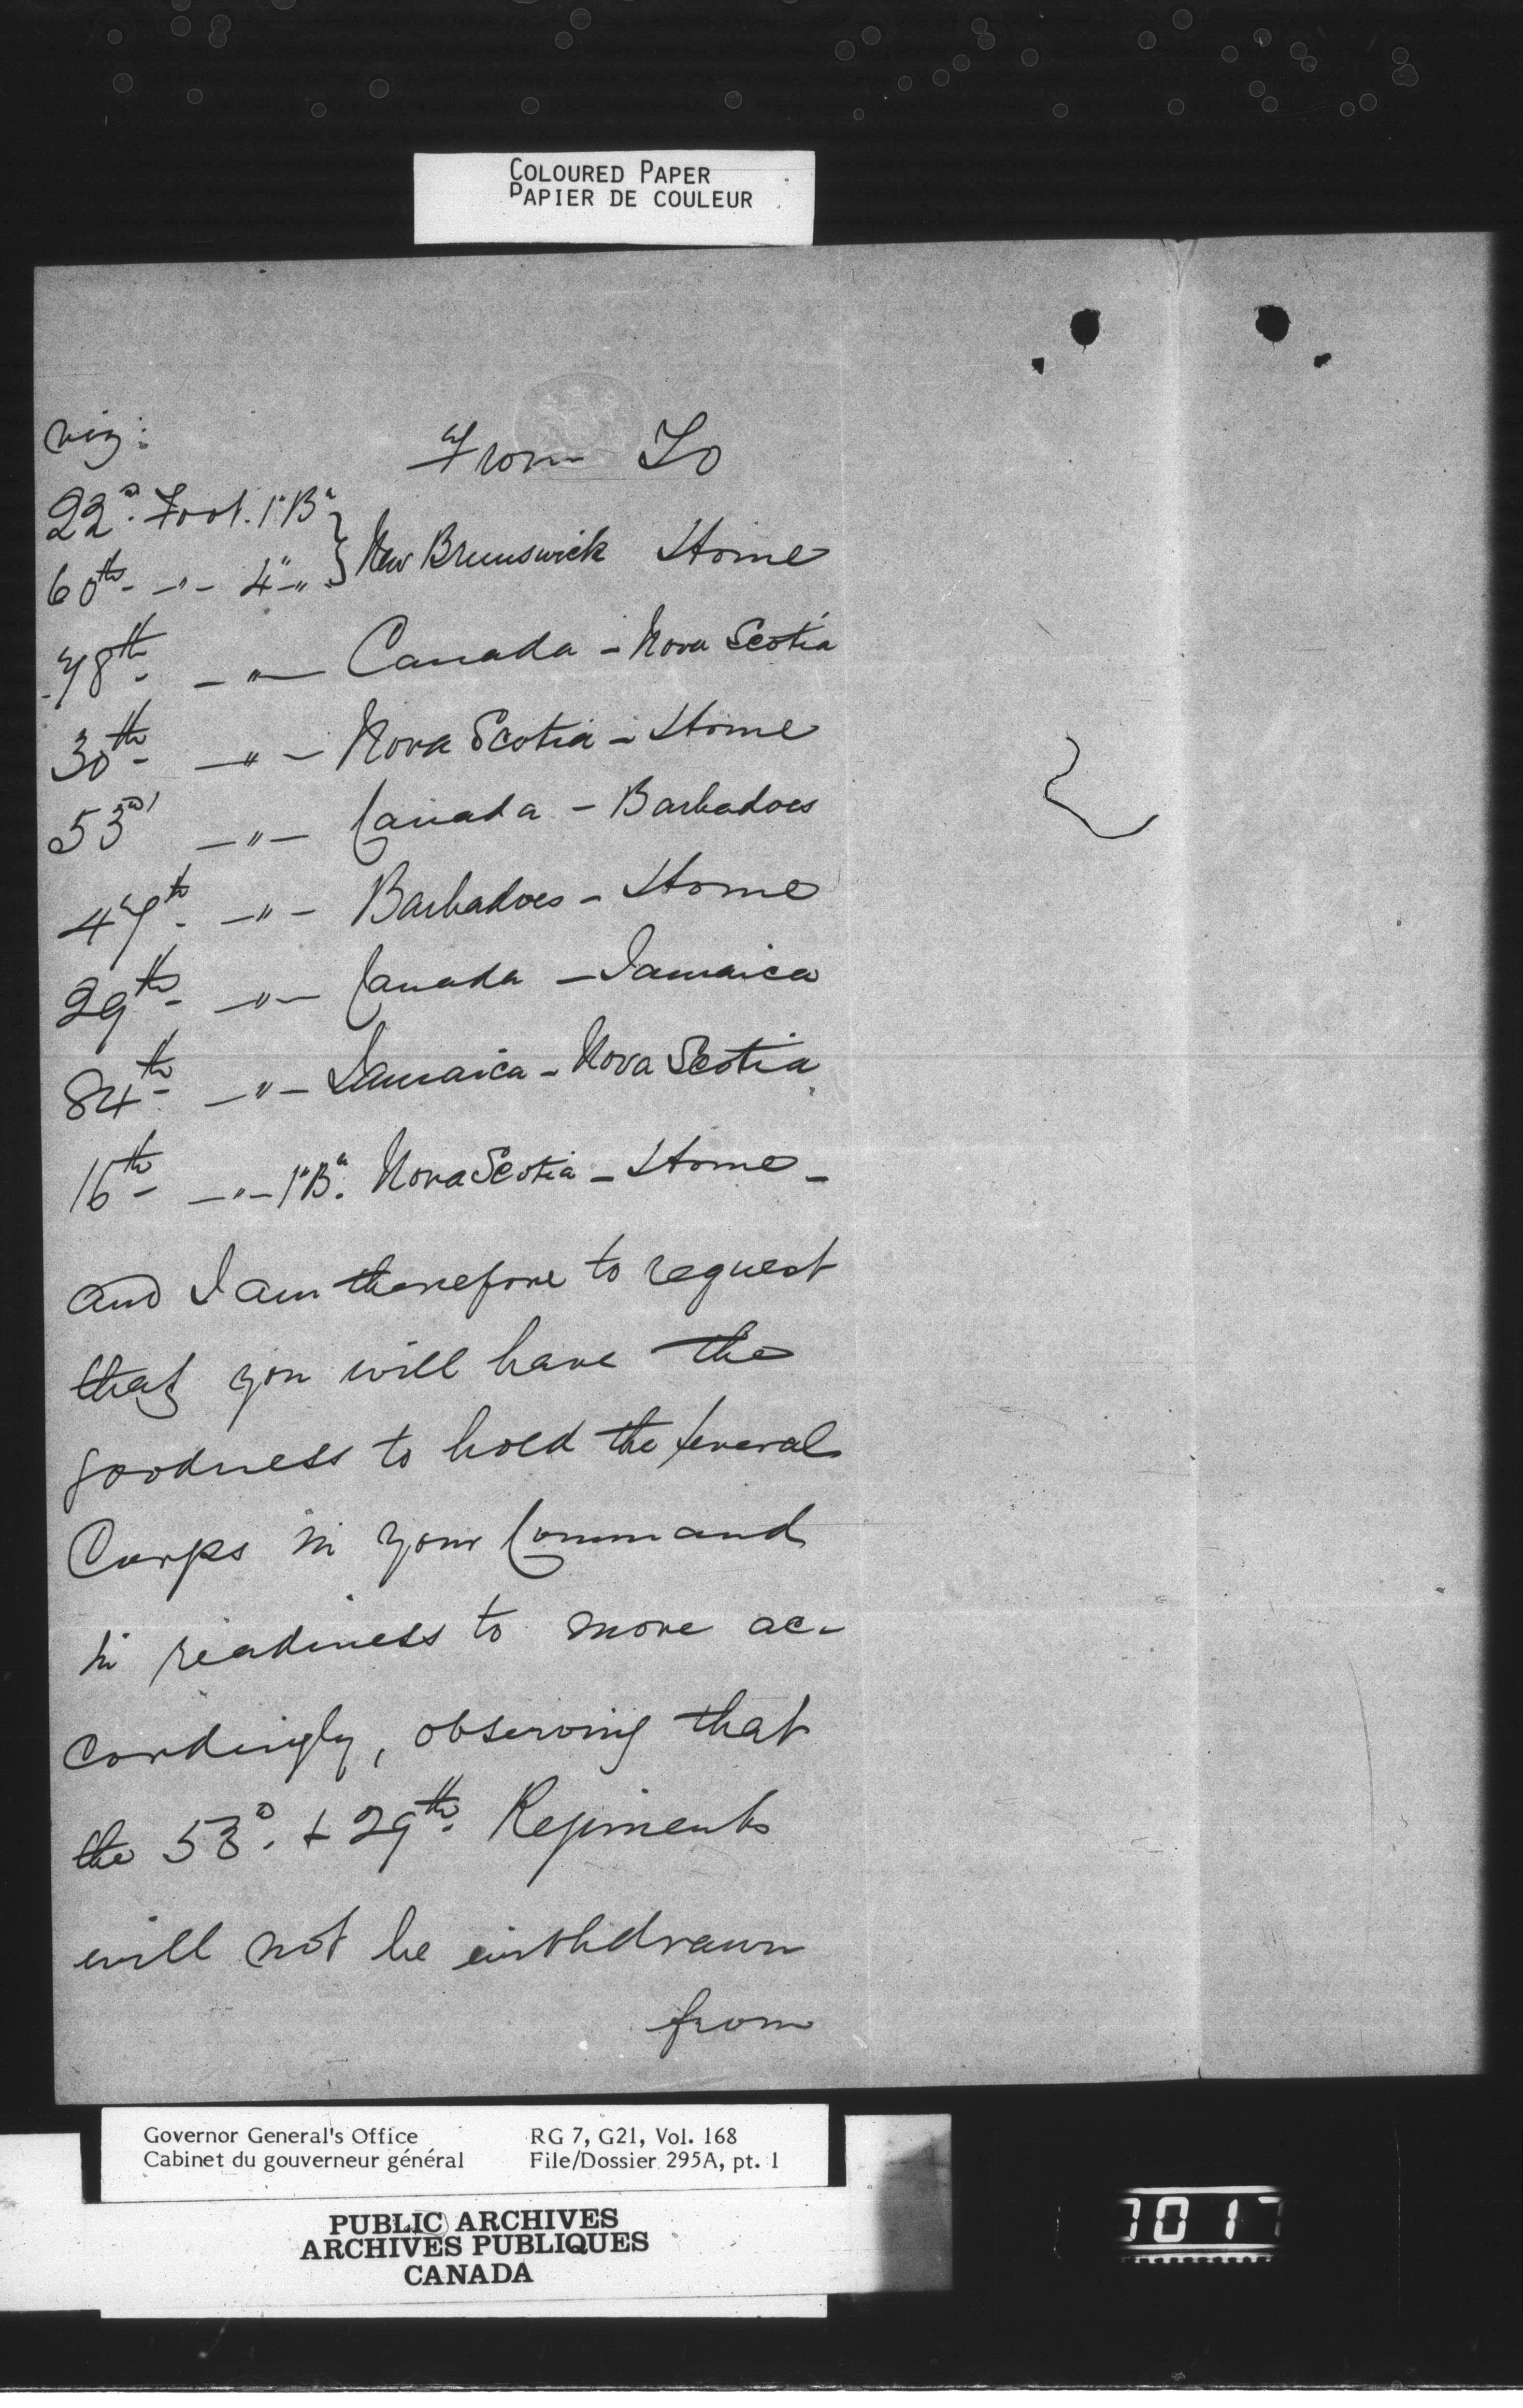 COLOURED PAPER
PAPIER DE COULEUR
viz:
From To
22d. Foot. 1" Bn
60th - " - 4 - " } New Brunswick Home
78th - " - Canada - Nova Scotia
30th - " - Nova Scotia - Home
53d - " - Canada - Barbadoes
47th - " - Barbadoes - Home
29th - " - Canada - Jamaica
84th - " - Jamaica - Nova Scotia
16th - " - 1" Bn. Nova Scotia - Home -
and I am therefore to request
that you will have the
goodness to hold the several
Corps in your Command
in readiness to move ac-
cordingly, observing that
the 53d. + 29th. Regiments
will not be withdrawn
from
Governor General's Office RG 7, G21, Vol. 168
Cabinet du gouverneur général File/Dossier 295A, pt. 1
PUBLIC ARCHIVES
ARCHIVES PUBLIQUES
CANADA
017